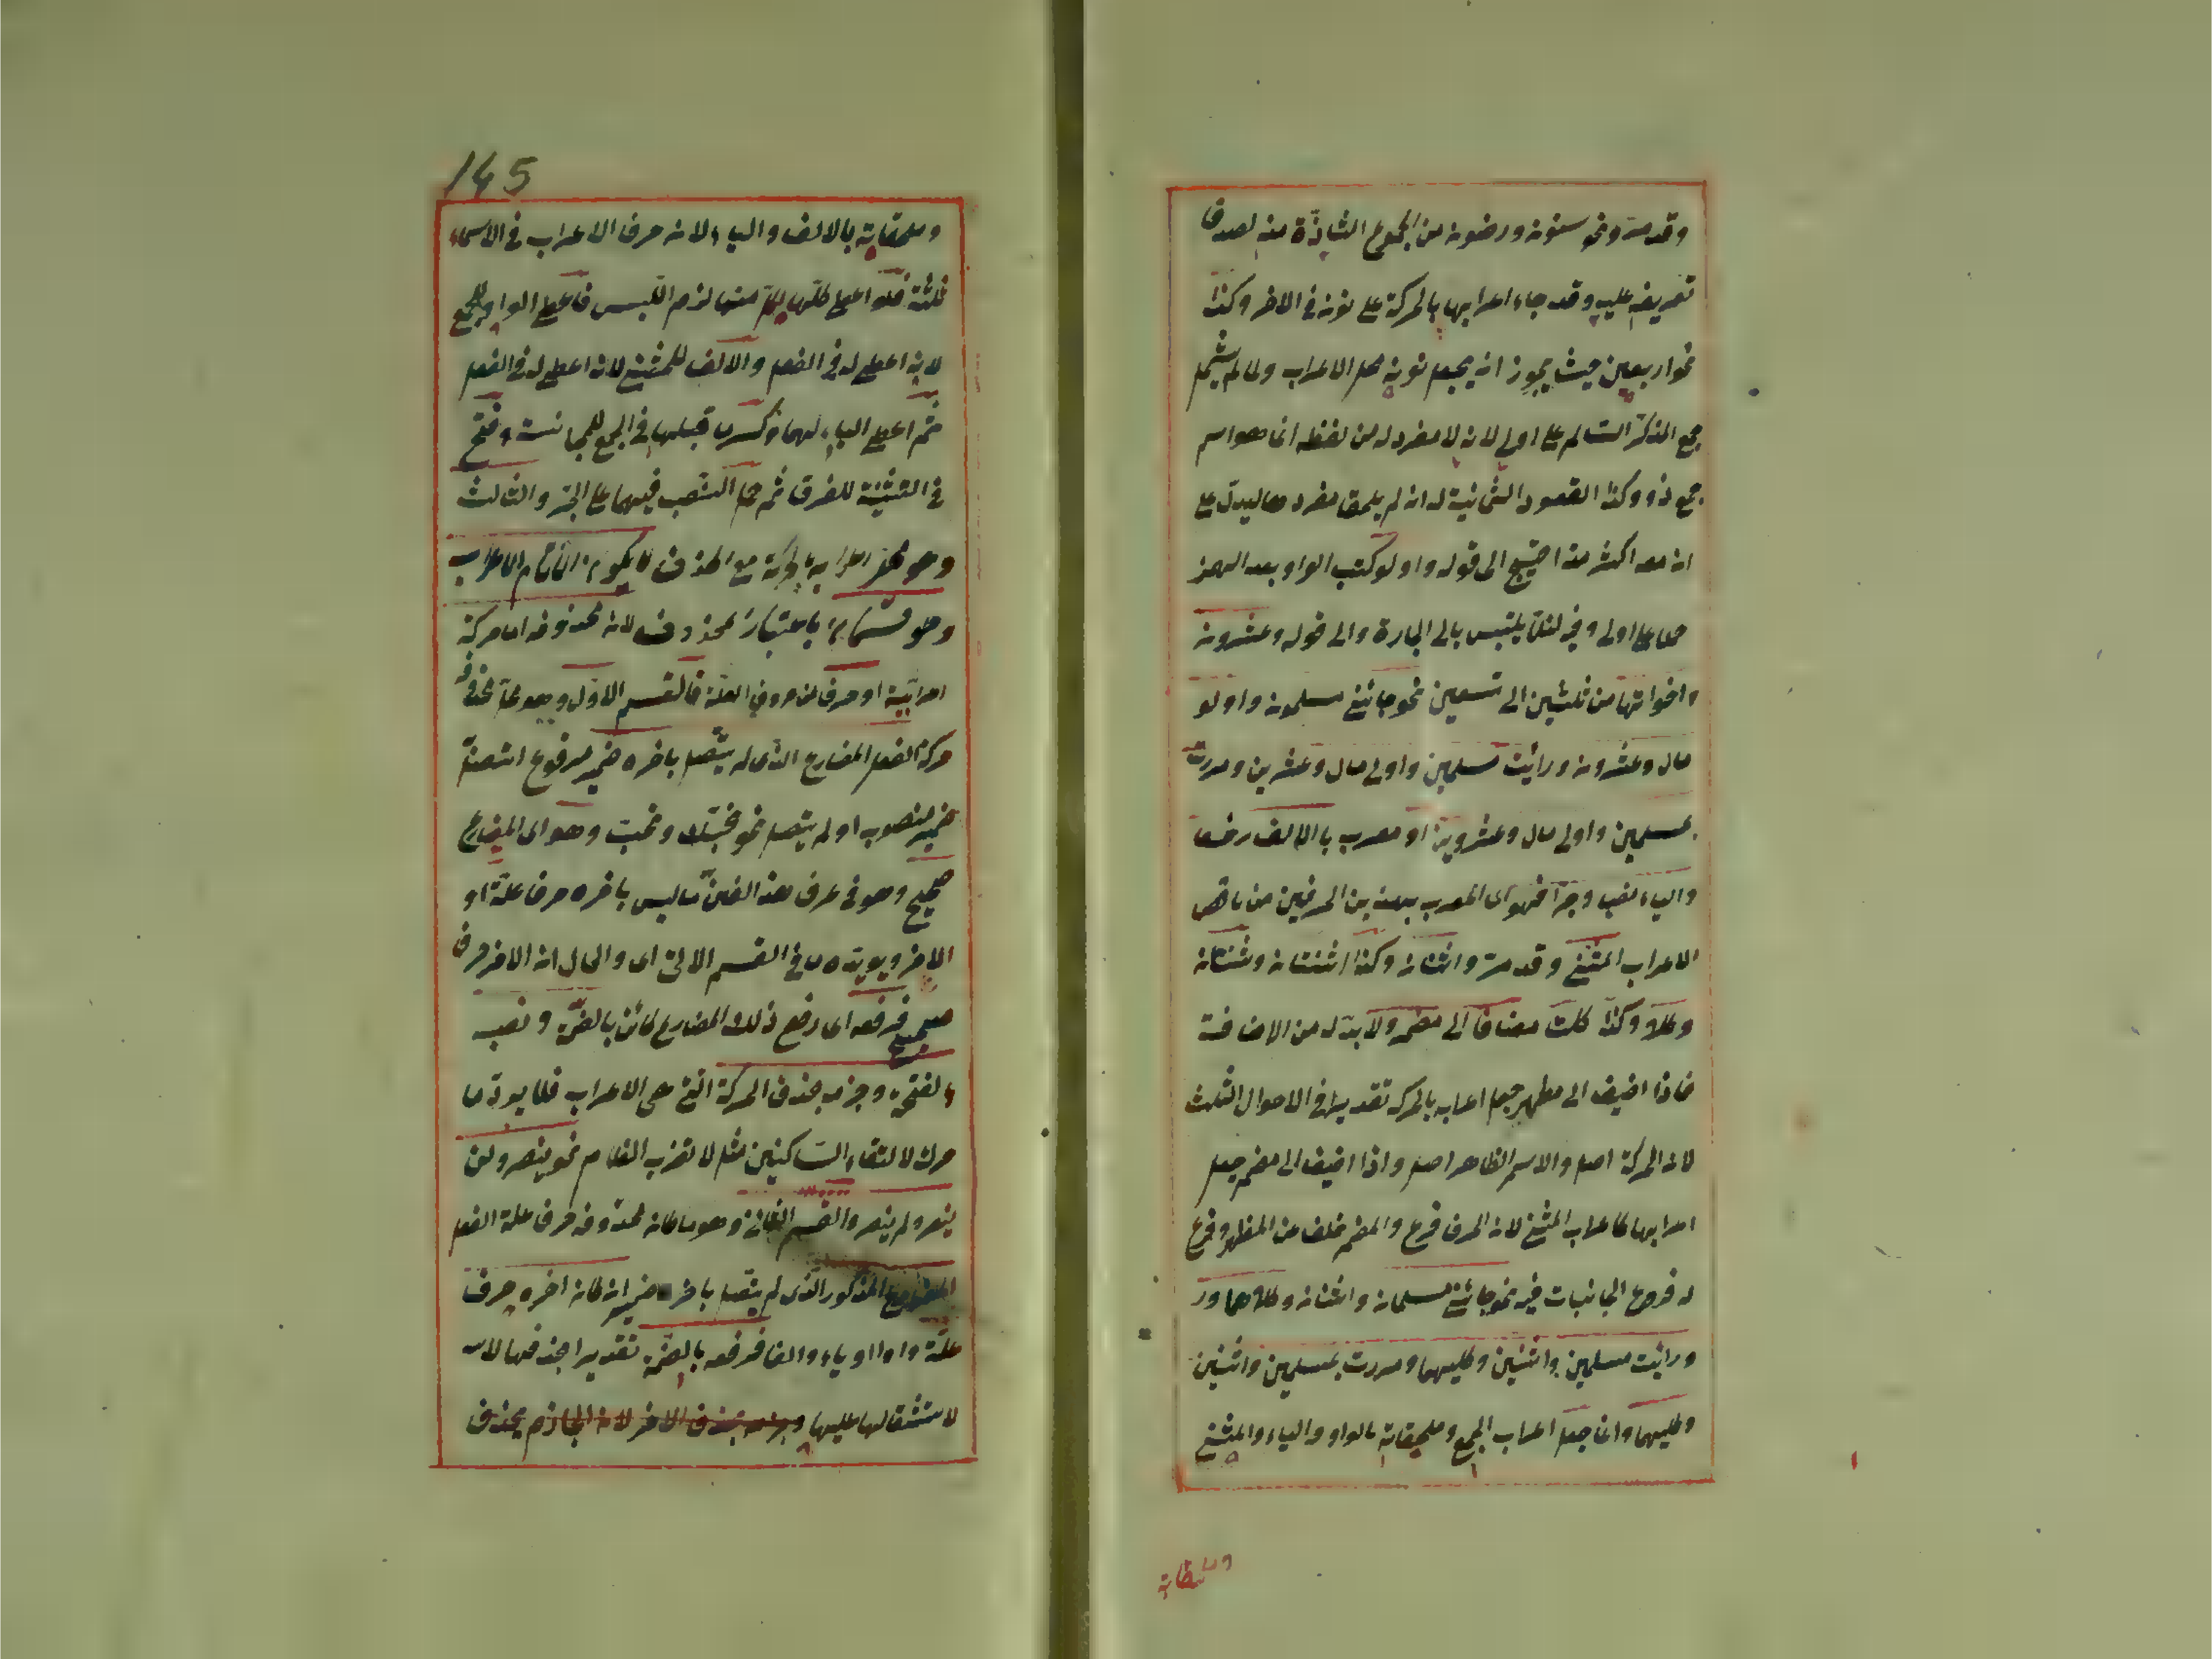 وقد مرّ ونحو سنون وارضون من الجموع الشاذة منه لصدق
تعريفه عليه وقد جاء اعرابها بالحركة على نونه فى الاخر وكذا
نحو اربعين حيث يجوز ان يجعل نونه محل الاعراب ولما لم يشمل
جمع المذكر السالم على اولى لانه لا مفرد له من لفظه انما هو اسم
جمع ذو وكذا العقود الثمانية له انه لم يلحق مفردها ليدل على
ان معه اكثر منه احتيج الى قوله واولو كتب الواو بعد الهمز
حملا على اولى وفيه لئلا يلتبس بالى الجارة والى قوله وعشرون
واخواتها من ثلثين الى تسعين نحو جائنى مسلمون واولو
مال وعشرون ورأيت مسلمين واولى مال وعشرين ومررت
بمسلمين واولى مال وعشرين او معرب بالالف رفعا
والياء نصبا وجرا فهو اى المعرب بهذين الحرفين من ناقص
الاعراب المثنى وقد مرّ واثنان وكذا اثنتان وثنتان
وكلا وكذا كلتا مضافا الى مضمر ولا بدّ له من الاضافة
فاذا اضيف الى مظهر جعل اعرابه بالحركة تقديرا فى الاحوال الثلث
لان الحركة اصل والاسم الظاهر اصل واذا اضيف الى مضمر جعل
اعرابها كاعراب المثنى لان الحرف فرع والمضمر خلف عن المظهر وفرع
له فروعى المجانبات فيه نحو جائنى مسلمان واثنان وكلاهما ور
ورأيت مسلمين واثنين وكليهما ومررت بمسلمين واثنين
وكليهما وانما جعل اعراب الجمع وملحقاته بالواو والياء والمثنى
وملحقاته
145
وملحقاته بالالف والياء لان حرف الاعراب فى الاسماء
ثلثة فلو اعطى كلها لكل منها لزم اللبس فاعطى الواو للجمع
لانه اعطى له فى الفعل والالف للمثنى لان اعطى له فى الفعل
ثم اعطى الياء لهما وكسر ما قبلها فى الجمع للمجانسة وفتح
فى التثنية للفرق ثم حمل النصب فيهما على الجر والثالث
وهو اعرابه بالحركة مع الحذف لا يكون الا تام الاعراب
وهو قسمان باعتبار محذوفه لان محذوفه اما حركة
اعرابية او حرف من حروف العلة فالقسم الاول وهو ما محذوفه
حركة الفعل المضارع الذى لم يتصل باخره ضمير مرفوع اتصل
ضمير منصوب او لم يتصل نحو نحبك ونحب وهو اى المضارع
صحيح وهو فى عرف هذا الفن ما ليس باخره حرف علة او
الاخر ويؤيده ما فى القسم الاتى اى والحال ان الاخر حرف
صحيح فرفعه اى رفع ذلك المضارع كائن بالضمة ونصبه
بالفتحة وجزمه بحذف الحركة التى هى الاعراب فلا يرد ما
حرك لالتقاء الساكنين مثل لا تضرب الغلام نحو ينصر ولن
ينصر ولم ينصر والقسم الثانى وهو ما كان محذوفه حرف علة الفعل
المضارع المذكور الذى لم يتصل باخره ضمير ان كان اخره حرف
علة واوا او ياء والفا فرفعه بالضمة تقديرا بحذفها
لاستثقالها عليها وجزمه بحذف الاخر لان الجازم يحذف